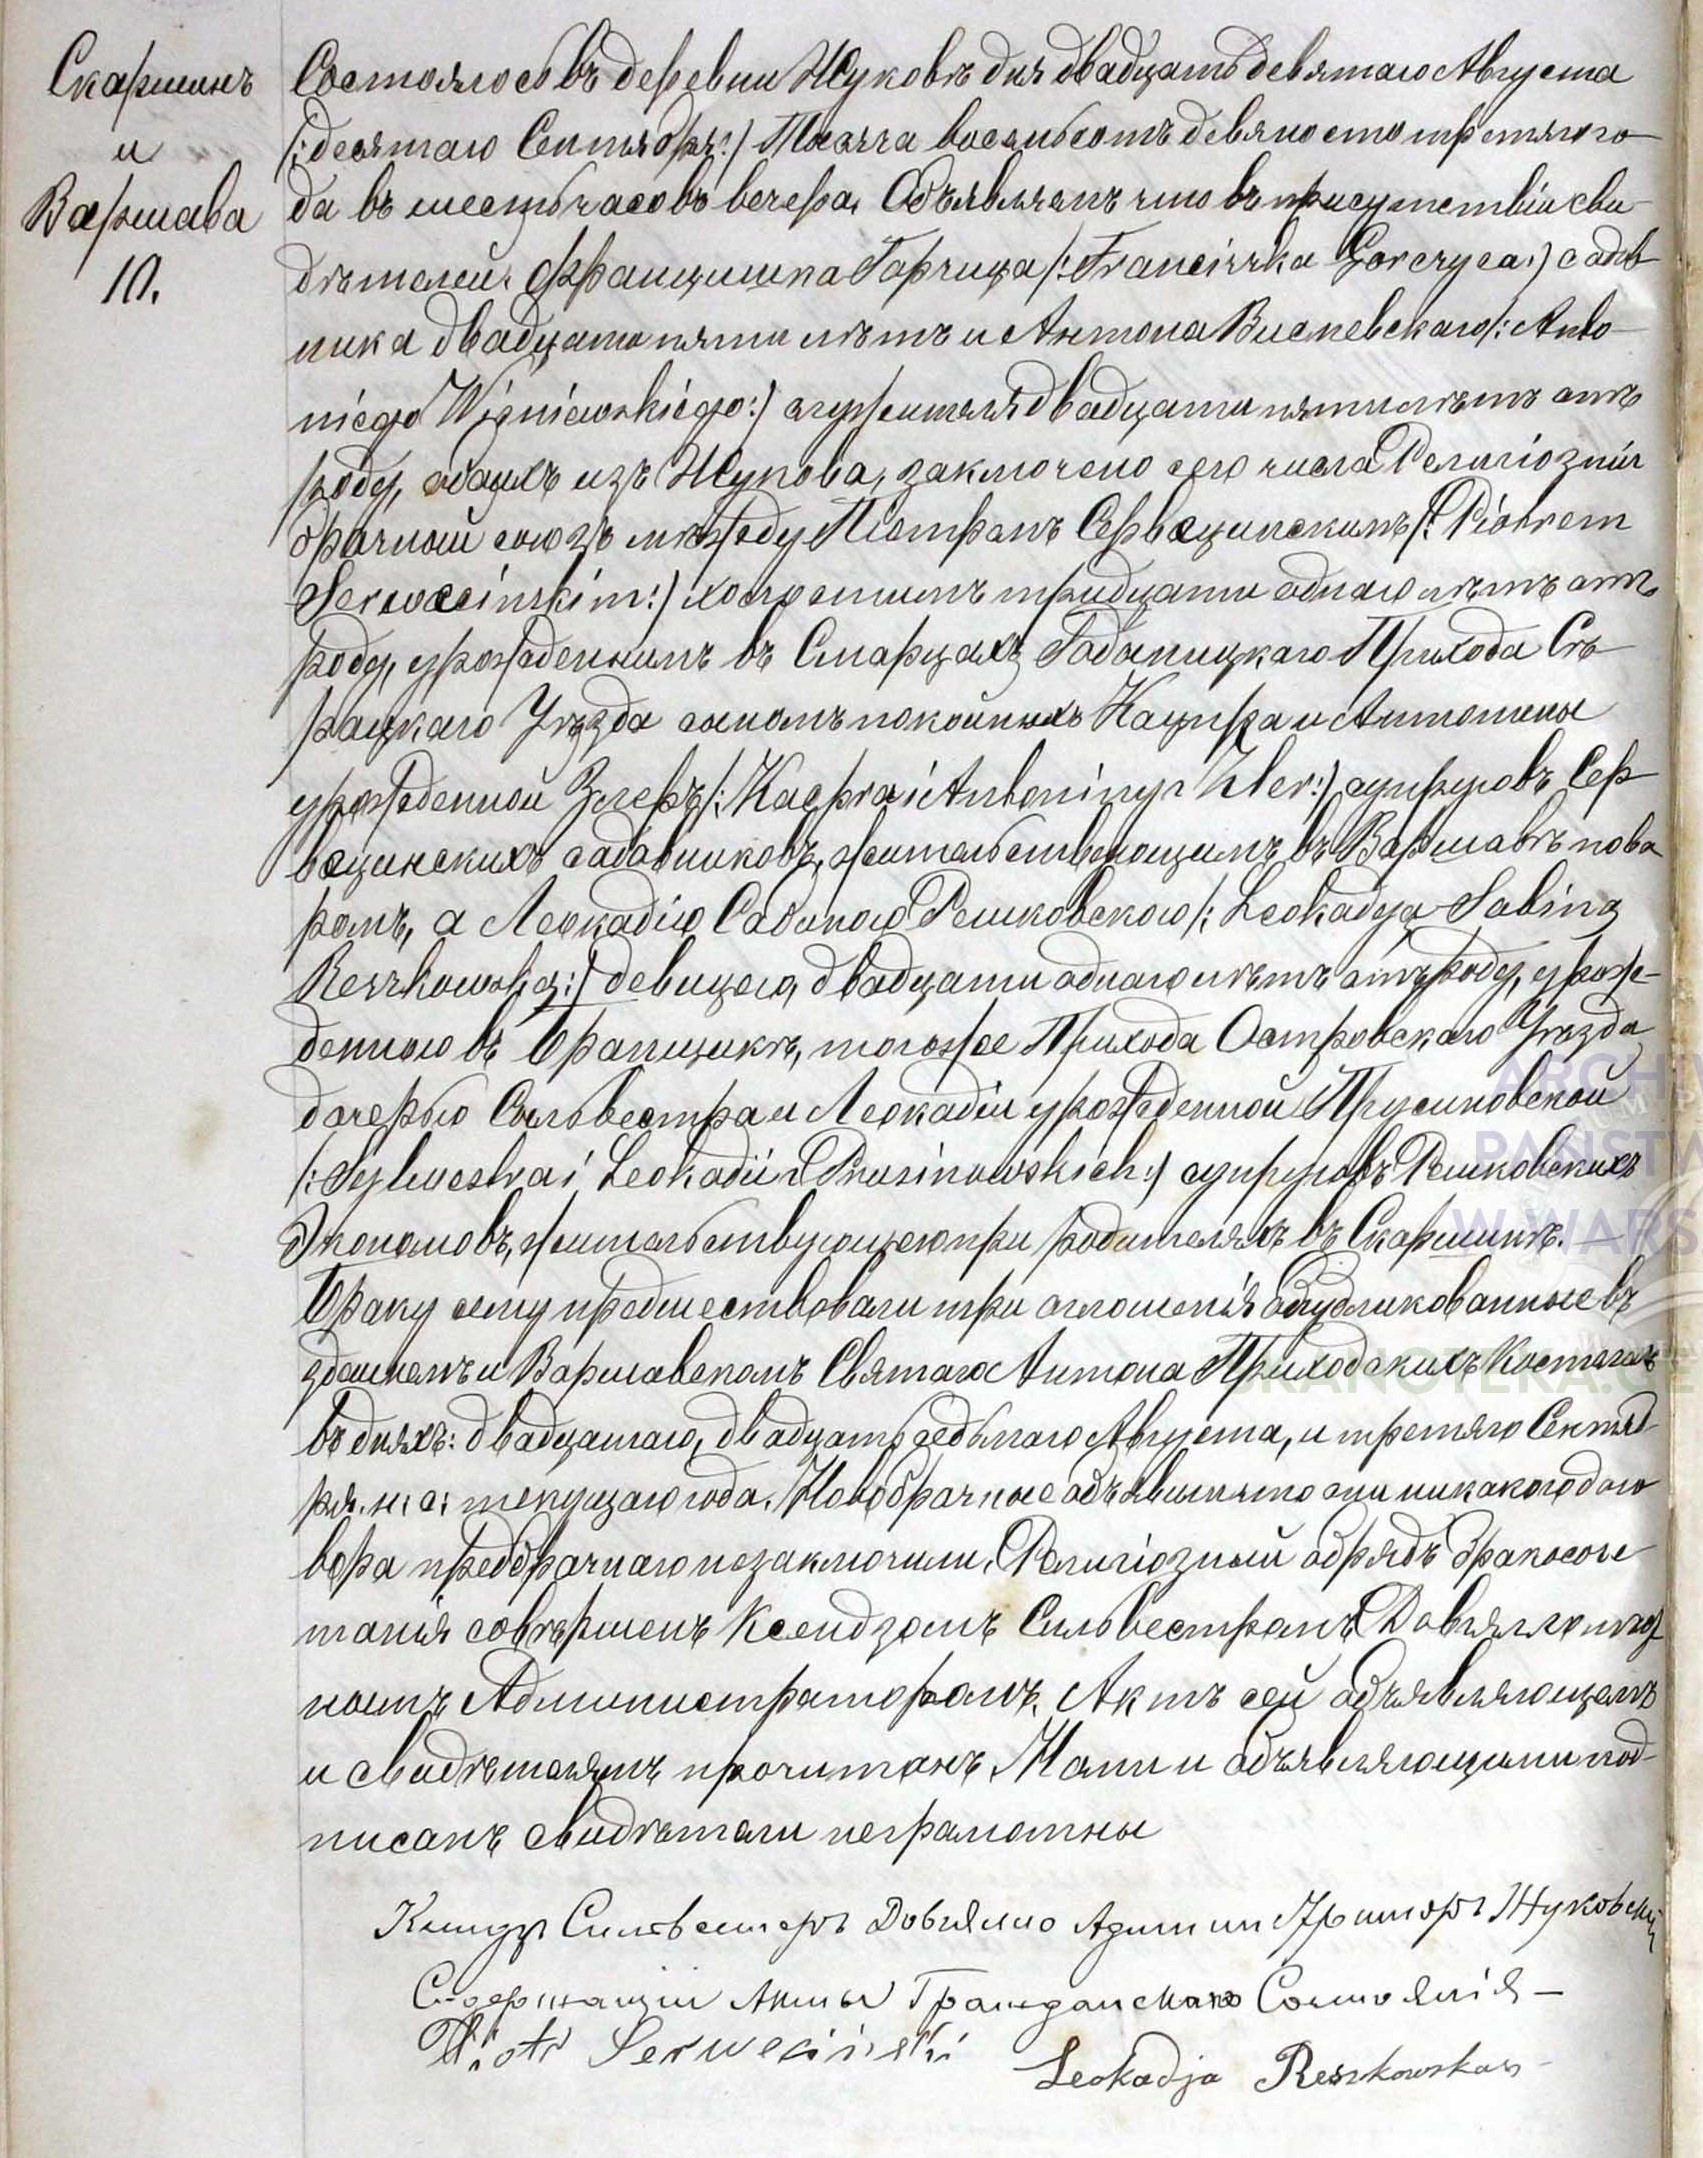 Скаршинъ
и
Варшава
10.
Состоялось въ деревни Жуковѣ дня двадцать девятаго Августа
/:десятаго Сентября:/ Тысяча восемьсотъ девяносто третяго го-
да въ шесть часовъ вечера. Объявляемъ что въ присутствіи сви-
дѣтелей: Францишка Горчица /:Franciszka Gorczyca:/ садов-
ника двадцати пяти лѣтъ и Антона Висневскаго /:Anto-
niego Wiśniewskiego:/ служителя двадцати пяти лѣтъ отъ
роду, обоихъ изъ Жукова, заключено сего числа Религіозній
брачный союзъ между Піотромъ Сервецинскимъ /:Piotrem
Serwecinskim:/ холостымъ тридцати одного лѣтъ отъ
роду, урожденнымъ въ Смарцахъ Прихода Сѣ-
рацкаго Уѣзда сыномъ покойныхъ Кацпра и Антонины
урожденной Злеръ /:Kacpra i Antoniny z Zler:/ супруговъ Сер-
вецинскихъ садовниковъ, жительствующимъ въ Варшавѣ пова-
ромъ, а Леокадіею Сабиною Решковскою /:Leokadyą Sabiną
Reszkowską:/ девицею, двадцати одного лѣтъ отъ роду, урож-
денною въ Бранщикѣ, того же Прихода Островскаго Уѣзда
дочерью Сильвестра и Леокадіи урожденной Прусиновской
/:Sylwestra i Leokadii z Prusinowskich:/ супруговъ Решковскихъ
Экономовъ, жительствующею при родителяхъ въ Скаршинѣ.
Браку сему предшествовали три оглошенія опубликованные въ
здешнемъ и Варшавскомъ Святаго Антона Приходскихъ Костелахъ
въ дняхъ: двадцатаго, двадцать седьмаго Августа, и третяго Сентяб-
ря. н: с: текущаго года. Новобрачные объявили что они никакого дого-
вора предбрачнаго незаключили. Религіозный обрядъ бракосоче-
танія совѣршенъ Ксендзомъ Сильвестромъ Довялло мѣст-
нымъ Администраторомъ. Актъ сей объявляющемъ
и свидѣтелямъ прочитанъ, Нами и объявляющими под-
писанъ свидѣтели неграмотны
Ксендзъ Сильвестеръ Довялло Администраторъ Жуковскій
Содержащій Акты Гражданскаго Состоянія –
Piotr Serwecinski
Leokadja Reszkowska